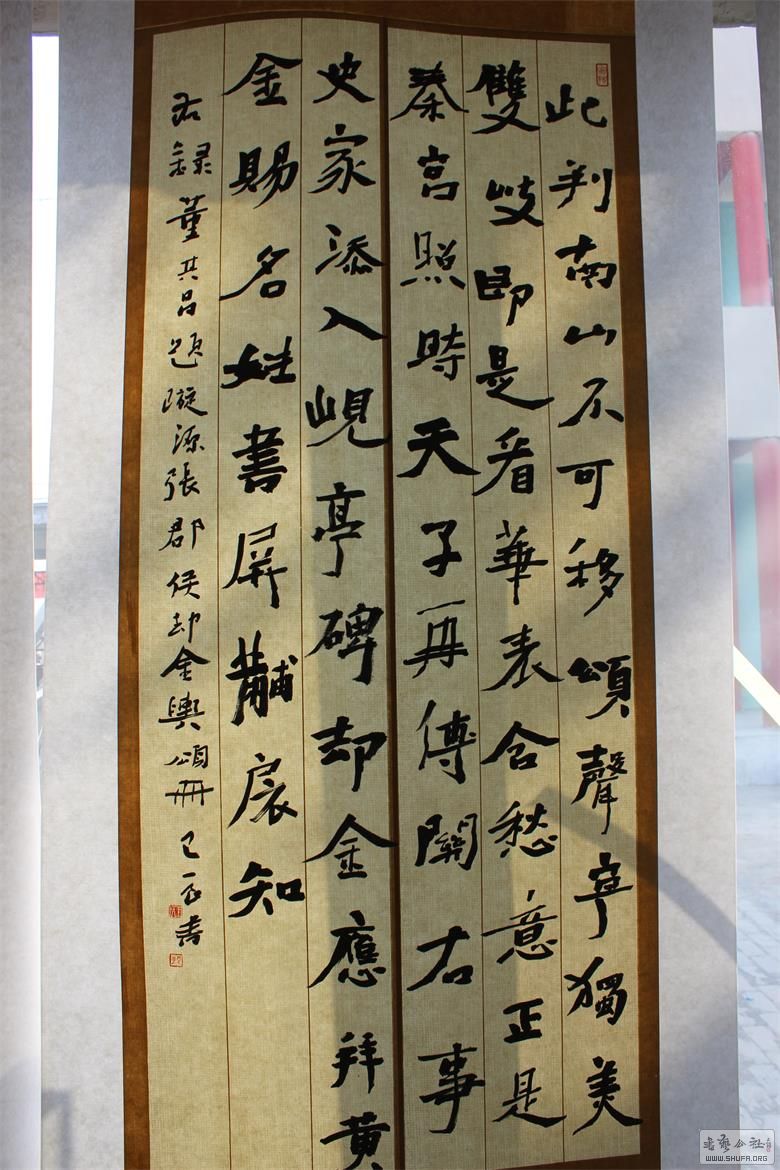 此判南山不可移頌聲寧獨美
雙岐即是看華表含愁意正是
秦宮照時天子再傳開右事
史家添入峴亭碑却金應拜黄
金賜名姓書屏黼扆知
右錄董其昌題璇源張郡侯却金輿頌冊 書
书艺公社
WWW.SHUFA.ORG